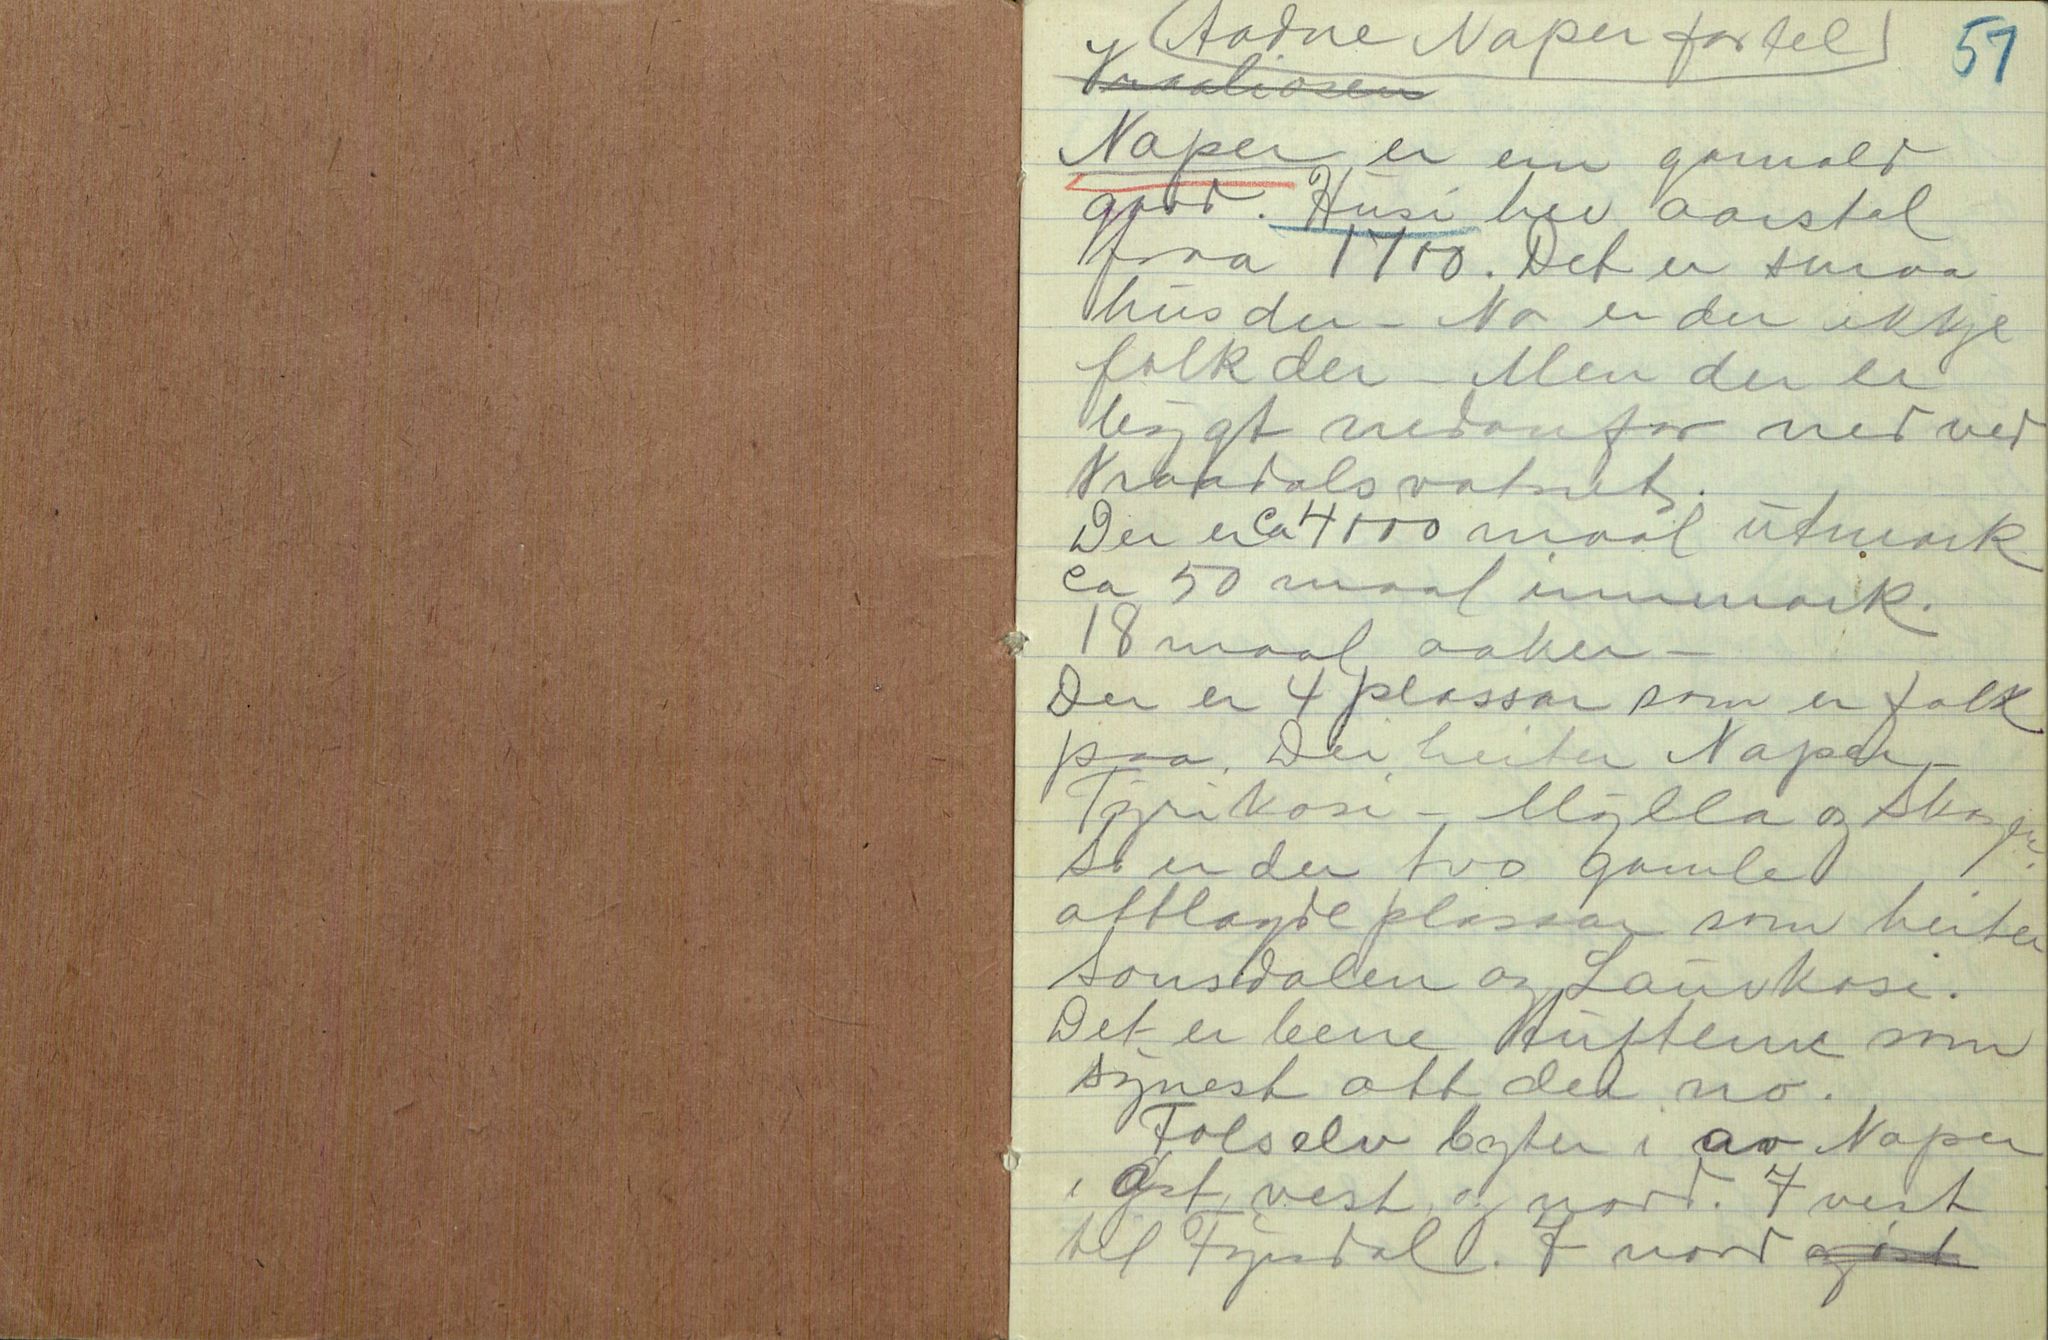 Aadne Naper fortel 51
Naper er ein gamald
gard. Husi hev aarstal
fraa 1700. Det er smaa
hus der – No er der ikkje
folk der – Men der er
bygt nedanfor ned ved
Vraadalsvatnet.
Der er ca 4000 maal utmark
ca 50 maal innmark.
18 maal aaker –
Der er 4 plassar som er folk
paa. Dei heiter Naper –
Tyrikosi – Mylla og
So er der two gamle
attlagde plassar som heiter
Sonsdalen og Lauvkosi.
Det er berre tuftene som
synest att der no.
Folselv byter i av Naper
i Øst, vest og nord. I vest
til Fyrisdal. I nord og øst